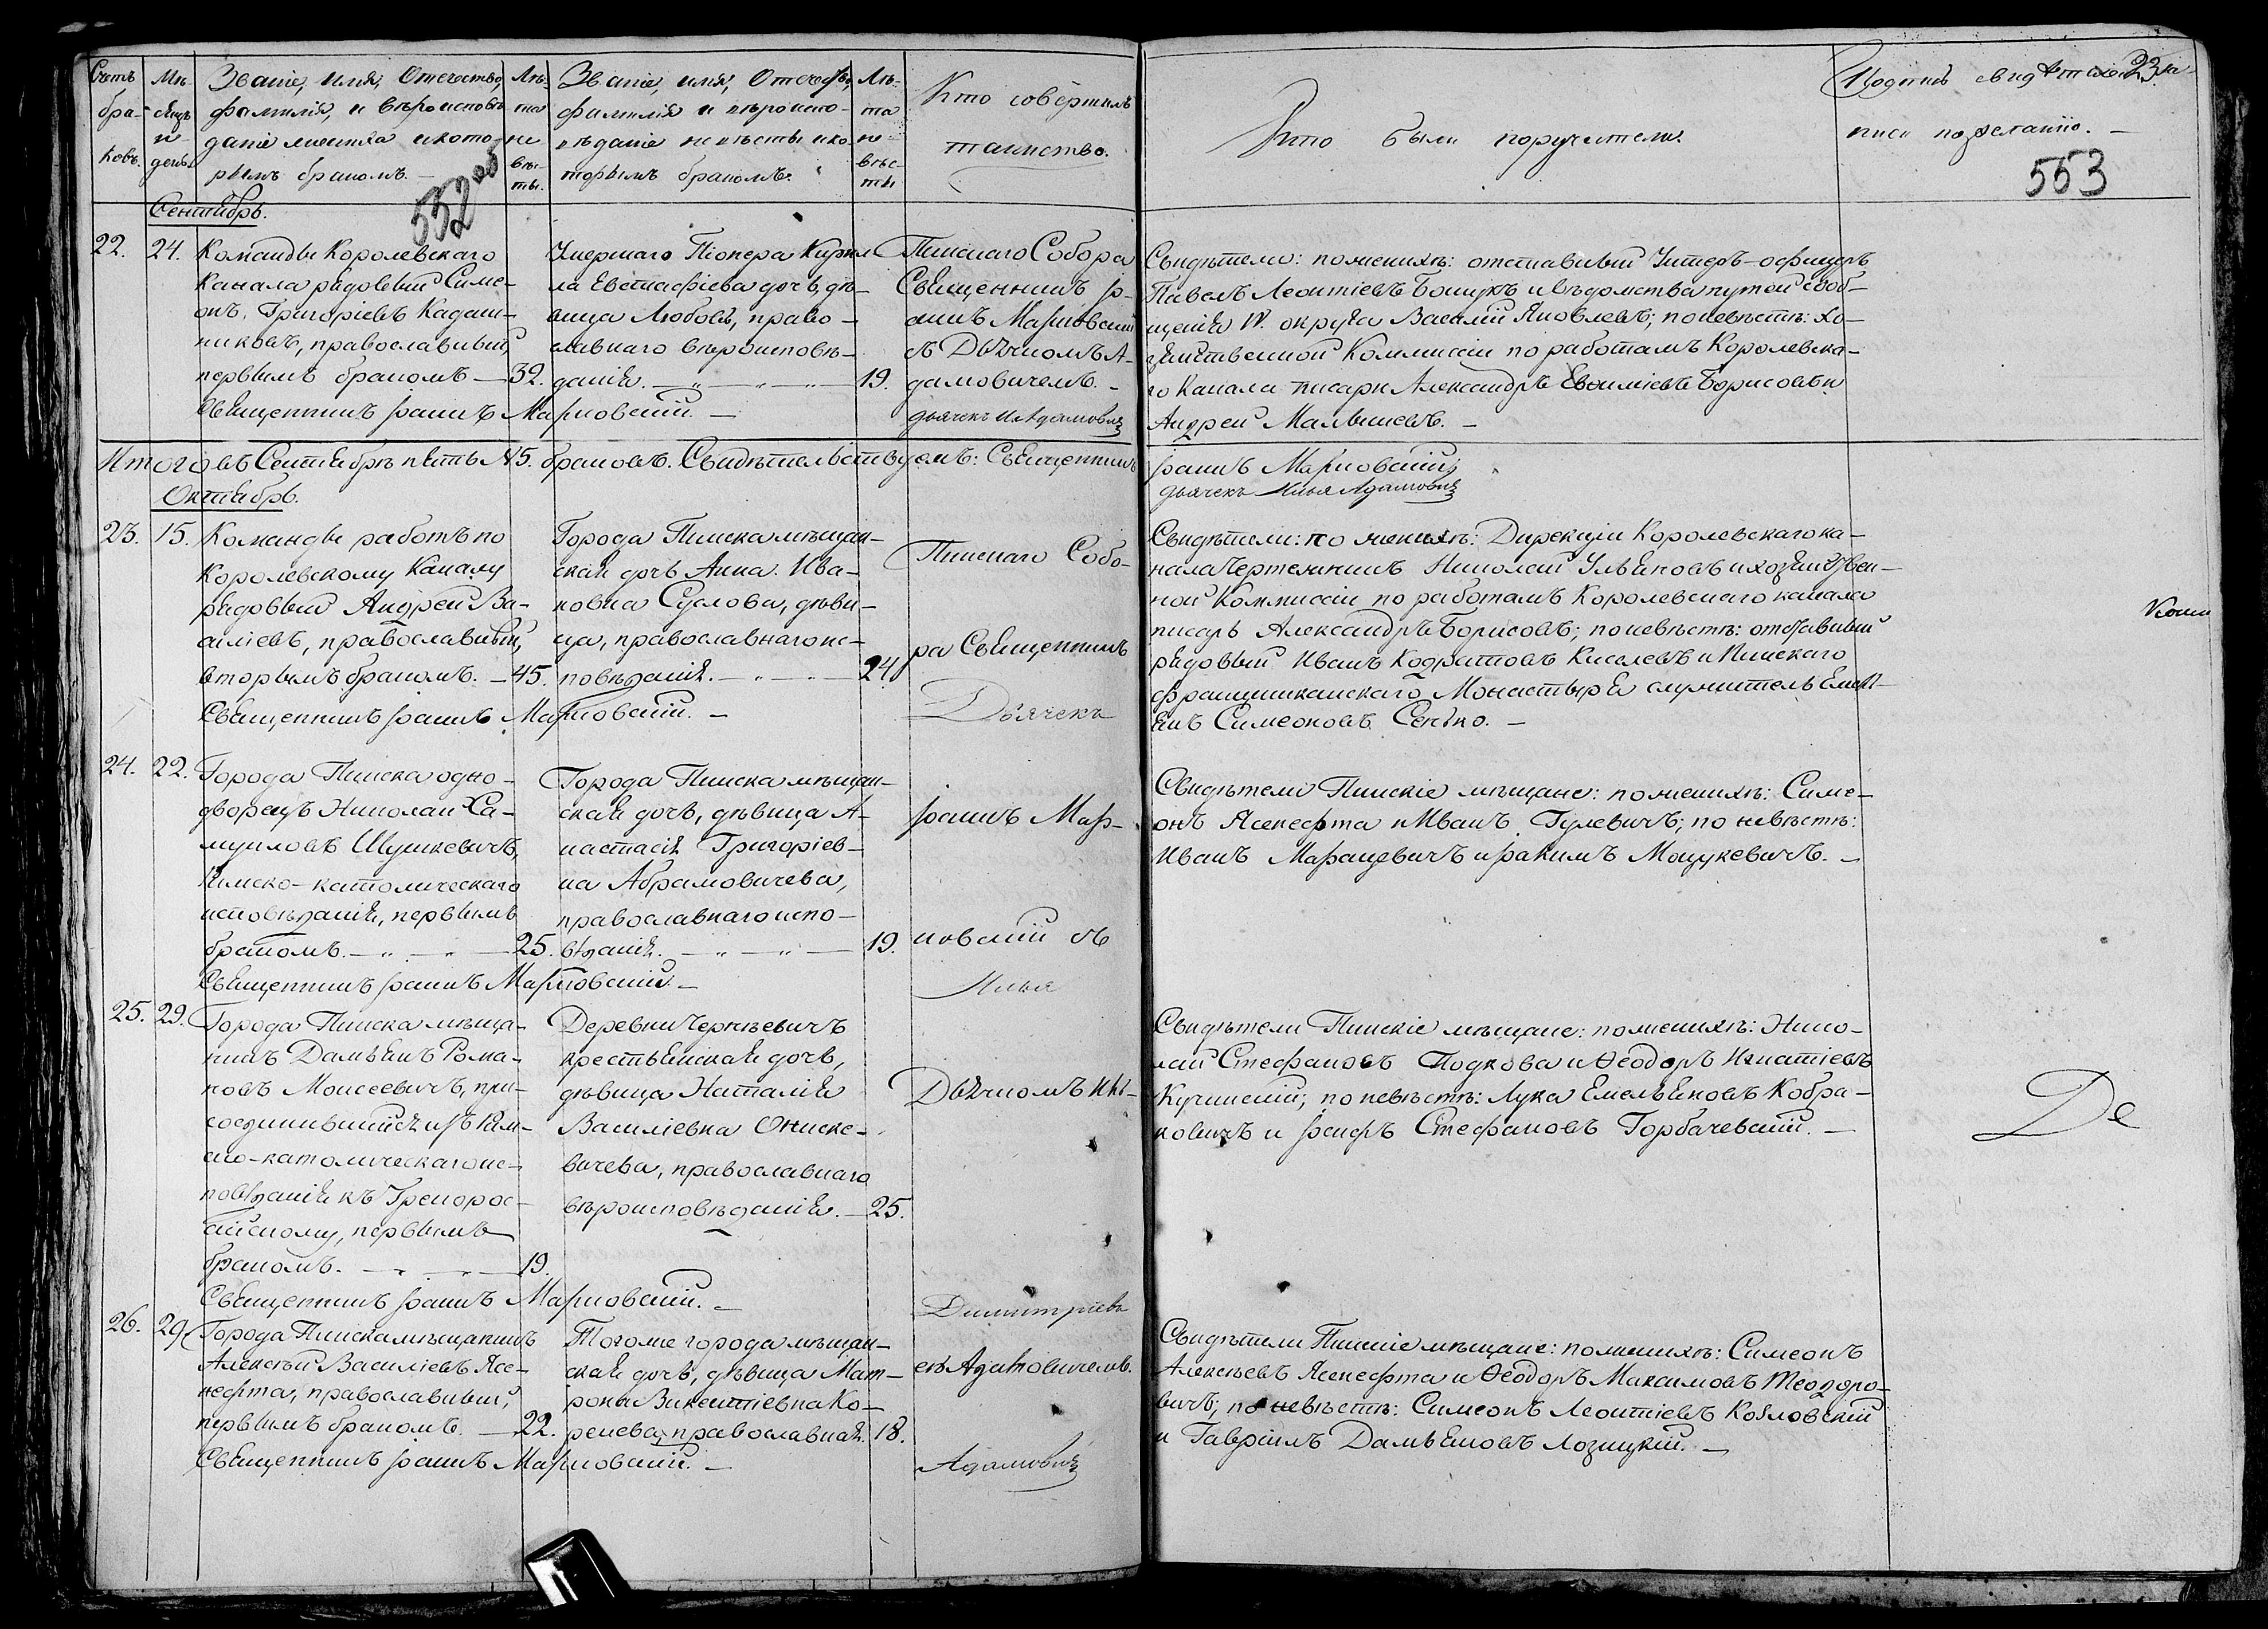 Счетъ браковъ.
Мѣсяцъ и день
Званіе, имя, отечество,
фамилія, и вѣроисповѣ
даніе жениха и кото-
рымъ бракомъ. —
Лѣ-
та
Званіе, имя, отечество,
фамилія и вѣроиспо-
вѣданіе невѣсты и ко-
торымъ бракомъ.
Лѣ-
та
не-
вѣс-
ты
Кто совершилъ
таинство.
Кто были поручители.
Подпись свидѣтелей за-
писи по желанію. —
23
552 об
553
Сентябрь.
22. 24.
Команды Королевскаго
Канала рядовый Симе-
онъ Григоріевъ Кадаш-
никовъ, православный,
первымъ бракомъ — 32.
Умершаго Піонера Кирил
ла Евстафіева дочь, дѣ-
вица Любовь, право-
славнаго вѣроисповѣ-
данія. — 19.
Пинскаго Собора
Священникъ Іо-
аннъ Марковскій
съ Дьячкомъ А-
дамовичемъ. —
дьячекъ И. Адамовичъ
Свидѣтели: по женихѣ: отставный Унтеръ-офицеръ
Павелъ Леонтіевъ и вѣдомства путей сооб-
щенія IV. округа Василій Яковлевъ; по невѣстѣ: хо-
зяйственной Коммиссіи по работамъ Королевска-
го Канала писаря Александръ Евѳиміевъ Борисовъ и
Андрей Малышевъ. —
Священникъ Іоаннъ Марковскій. —
Итого въ Сентябрѣ пять № 5. браковъ. Свидѣтельствуемъ: Священникъ Іоаннъ Марковскій;
дьячекъ Илья Адамовичъ
Октябрь.
23. 15.
Команды работъ по
Королевскому Каналу
рядовый Андрей Ва-
силіевъ, православный,
вторымъ бракомъ. — 45.
Города Пинска мѣщан-
ская дочь Анна Ива-
новна Суслова, дѣви-
ца, православнаго ис-
повѣданія. — 24.
Пинскаго Собо-
ра Священникъ
Дьячекъ
Свидѣтели: по женихѣ: Дирекціи Королевскаго ка-
нала Чертежникъ Николай Ульяновъ и хозяйствен-
ной Коммиссіи по работамъ Королевскаго канала
писарь Александръ Борисовъ; по невѣстѣ: отставный
рядовый Иванъ Кодратовъ Киселевъ и Пинскаго
францишканскаго Монастыря служитель Емел-
янъ Симеоновъ Сенько. —
Священникъ Іоаннъ Марковскій. —
Копи
24. 22.
Города Пинска одно-
дворецъ Николай Са-
муиловъ Шушкевичъ,
Римско-католическаго
исповѣданія, первымъ
бракомъ. — 25.
Города Пинска мѣщан-
ская дочь, дѣвица А-
настасія Григоріев-
на Абрамовичева,
православнаго испо-
вѣданія. — 19.
Іоаннъ Мар-
ковскій съ
Илья
Свидѣтели Пинскіе мѣщане: по женихѣ: Симе-
онъ Ясенефта и Иванъ Гулевичъ; по невѣстѣ:
Иванъ Марацевичъ и Іакимъ Моцукевичъ. —
Священникъ Іоаннъ Марковскій. —
25. 29.
Города Пинска мѣща-
нинъ Дамьянъ Рома-
новъ Моисеевичъ, при-
соединившійся изъ Рим-
ско-католическаго ис-
повѣданія къ Грекорос-
сійскому, первымъ
бракомъ. — 19.
Деревни Чернѣевичъ
крестьянская дочь,
дѣвица Наталія
Василіевна Ониске-
вичева, православнаго
вѣроисповѣданія. — 25.
Дьячкомъ Иль-
Димитріевъ
Свидѣтели Пинскіе мѣщане: по женихѣ: Нико-
лай Стефановъ Подкова и Ѳеодоръ Игнатіевъ
Кучинскій; по невѣстѣ: Лука Емельяновъ Кобра-
ковичъ и Іосифъ Стефановъ Горбачевскій. —
Священникъ Іоаннъ Марковскій. —
Де
26. 29.
Города Пинска мѣщанинъ
Алексѣй Василіевъ Ясе-
нефта, православный,
первымъ бракомъ. — 22.
Тогоже города мѣщан-
ская дочь, дѣвица Мат-
рона Викентіевна Ко-
ренева, православная. 18.
ею Адамовичемъ.
Адамовичъ
Свидѣтели Пинскіе мѣщане: по женихѣ: Симеонъ
Алексѣевъ Ясенефта и Ѳеодоръ Максимовъ Теодоро-
вичъ; по невѣстѣ: Симеонъ Леонтіевъ Козловскій
и Гавріилъ Дамьяновъ Лозицкій. —
Священникъ Іоаннъ Марковскій. —